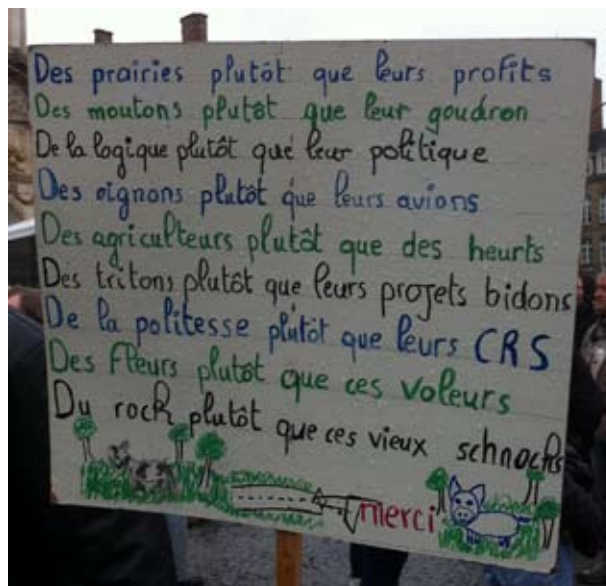 Des prairies plutôt que leurs profits
Des moutons plutôt que leur goudron
De la logique plutôt que leur politique
Des oignons plutôt que leurs avions
Des agriculteurs plutôt que des heurts
Des tritons plutôt que leurs projets bidons
De la politesse plutôt que leurs CRS
Des fleurs plutôt que ces voleurs
Du rock plutôt que ces vieux schnocks
merci